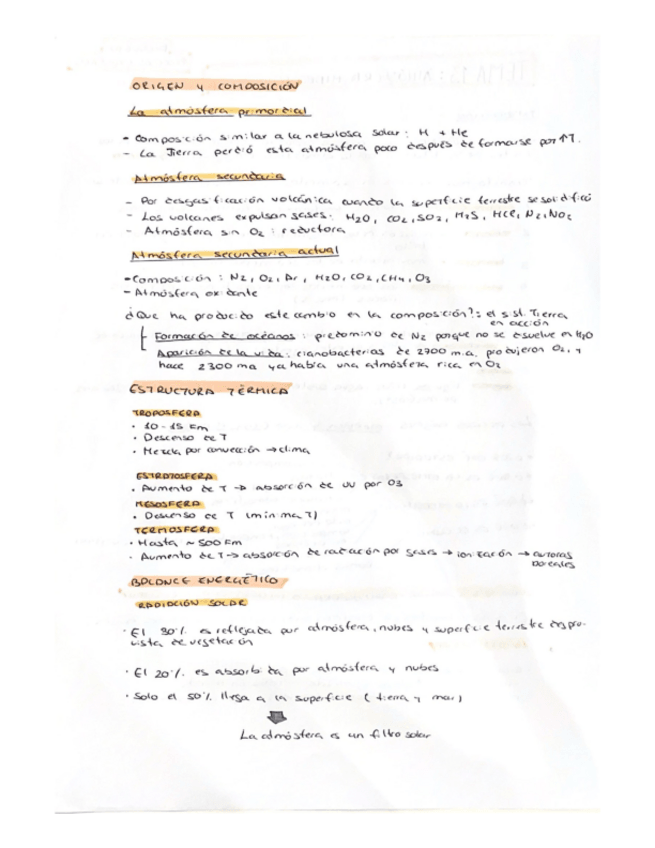 ORIGEN y COMPOSICIÓN
La atmósfera primordial
- Composición similar a la nebulosa solar: H + He
- La Tierra perdió esta atmósfera poco después de formarse por ↑T.
Atmósfera secundaria
- Por desgasificación volcánica cuando la superficie terrestre se solidificó
- Los volcanes expulsan gases: H2O, CO2, SO2, H2S, HCl, N2, NO2
- Atmósfera sin O2: reductora
Atmósfera secundaria actual
- Composición: N2, O2, Ar, H2O, CO2, CH4, O3
- Atmósfera oxidante
¿Que ha producido este cambio en la composición?: el sist. Tierra
en acción
Formación de océanos: predominio de N2 porque no se disuelve en H2O
Aparición de la vida: cianobacterias de 2700 m.a. produjeron O2, y
hace 2300 ma ya había una atmósfera rica en O2
ESTRUCTURA TÉRMICA
TROPOSFERA
· 10-15 Km
· Descenso de T
· Mezcla por convección → clima
ESTRATOSFERA
· Aumento de T → absorción de UV por O3
MESOSFERA
· Descenso de T (mínima T)
TERMOSFERA
· Hasta ~ 500 Km
· Aumento de T → absorción de radiación por gases → ionización → auroras
boreales
BALANCE ENERGÉTICO
RADIACIÓN SOLAR
· El 30% es reflejada por atmósfera, nubes y superficie terrestre despro-
vista de vegetación
· El 20% es absorbida por atmósfera y nubes
· Solo el 50% llega a la superficie (tierra y mar)
La atmósfera es un filtro solar